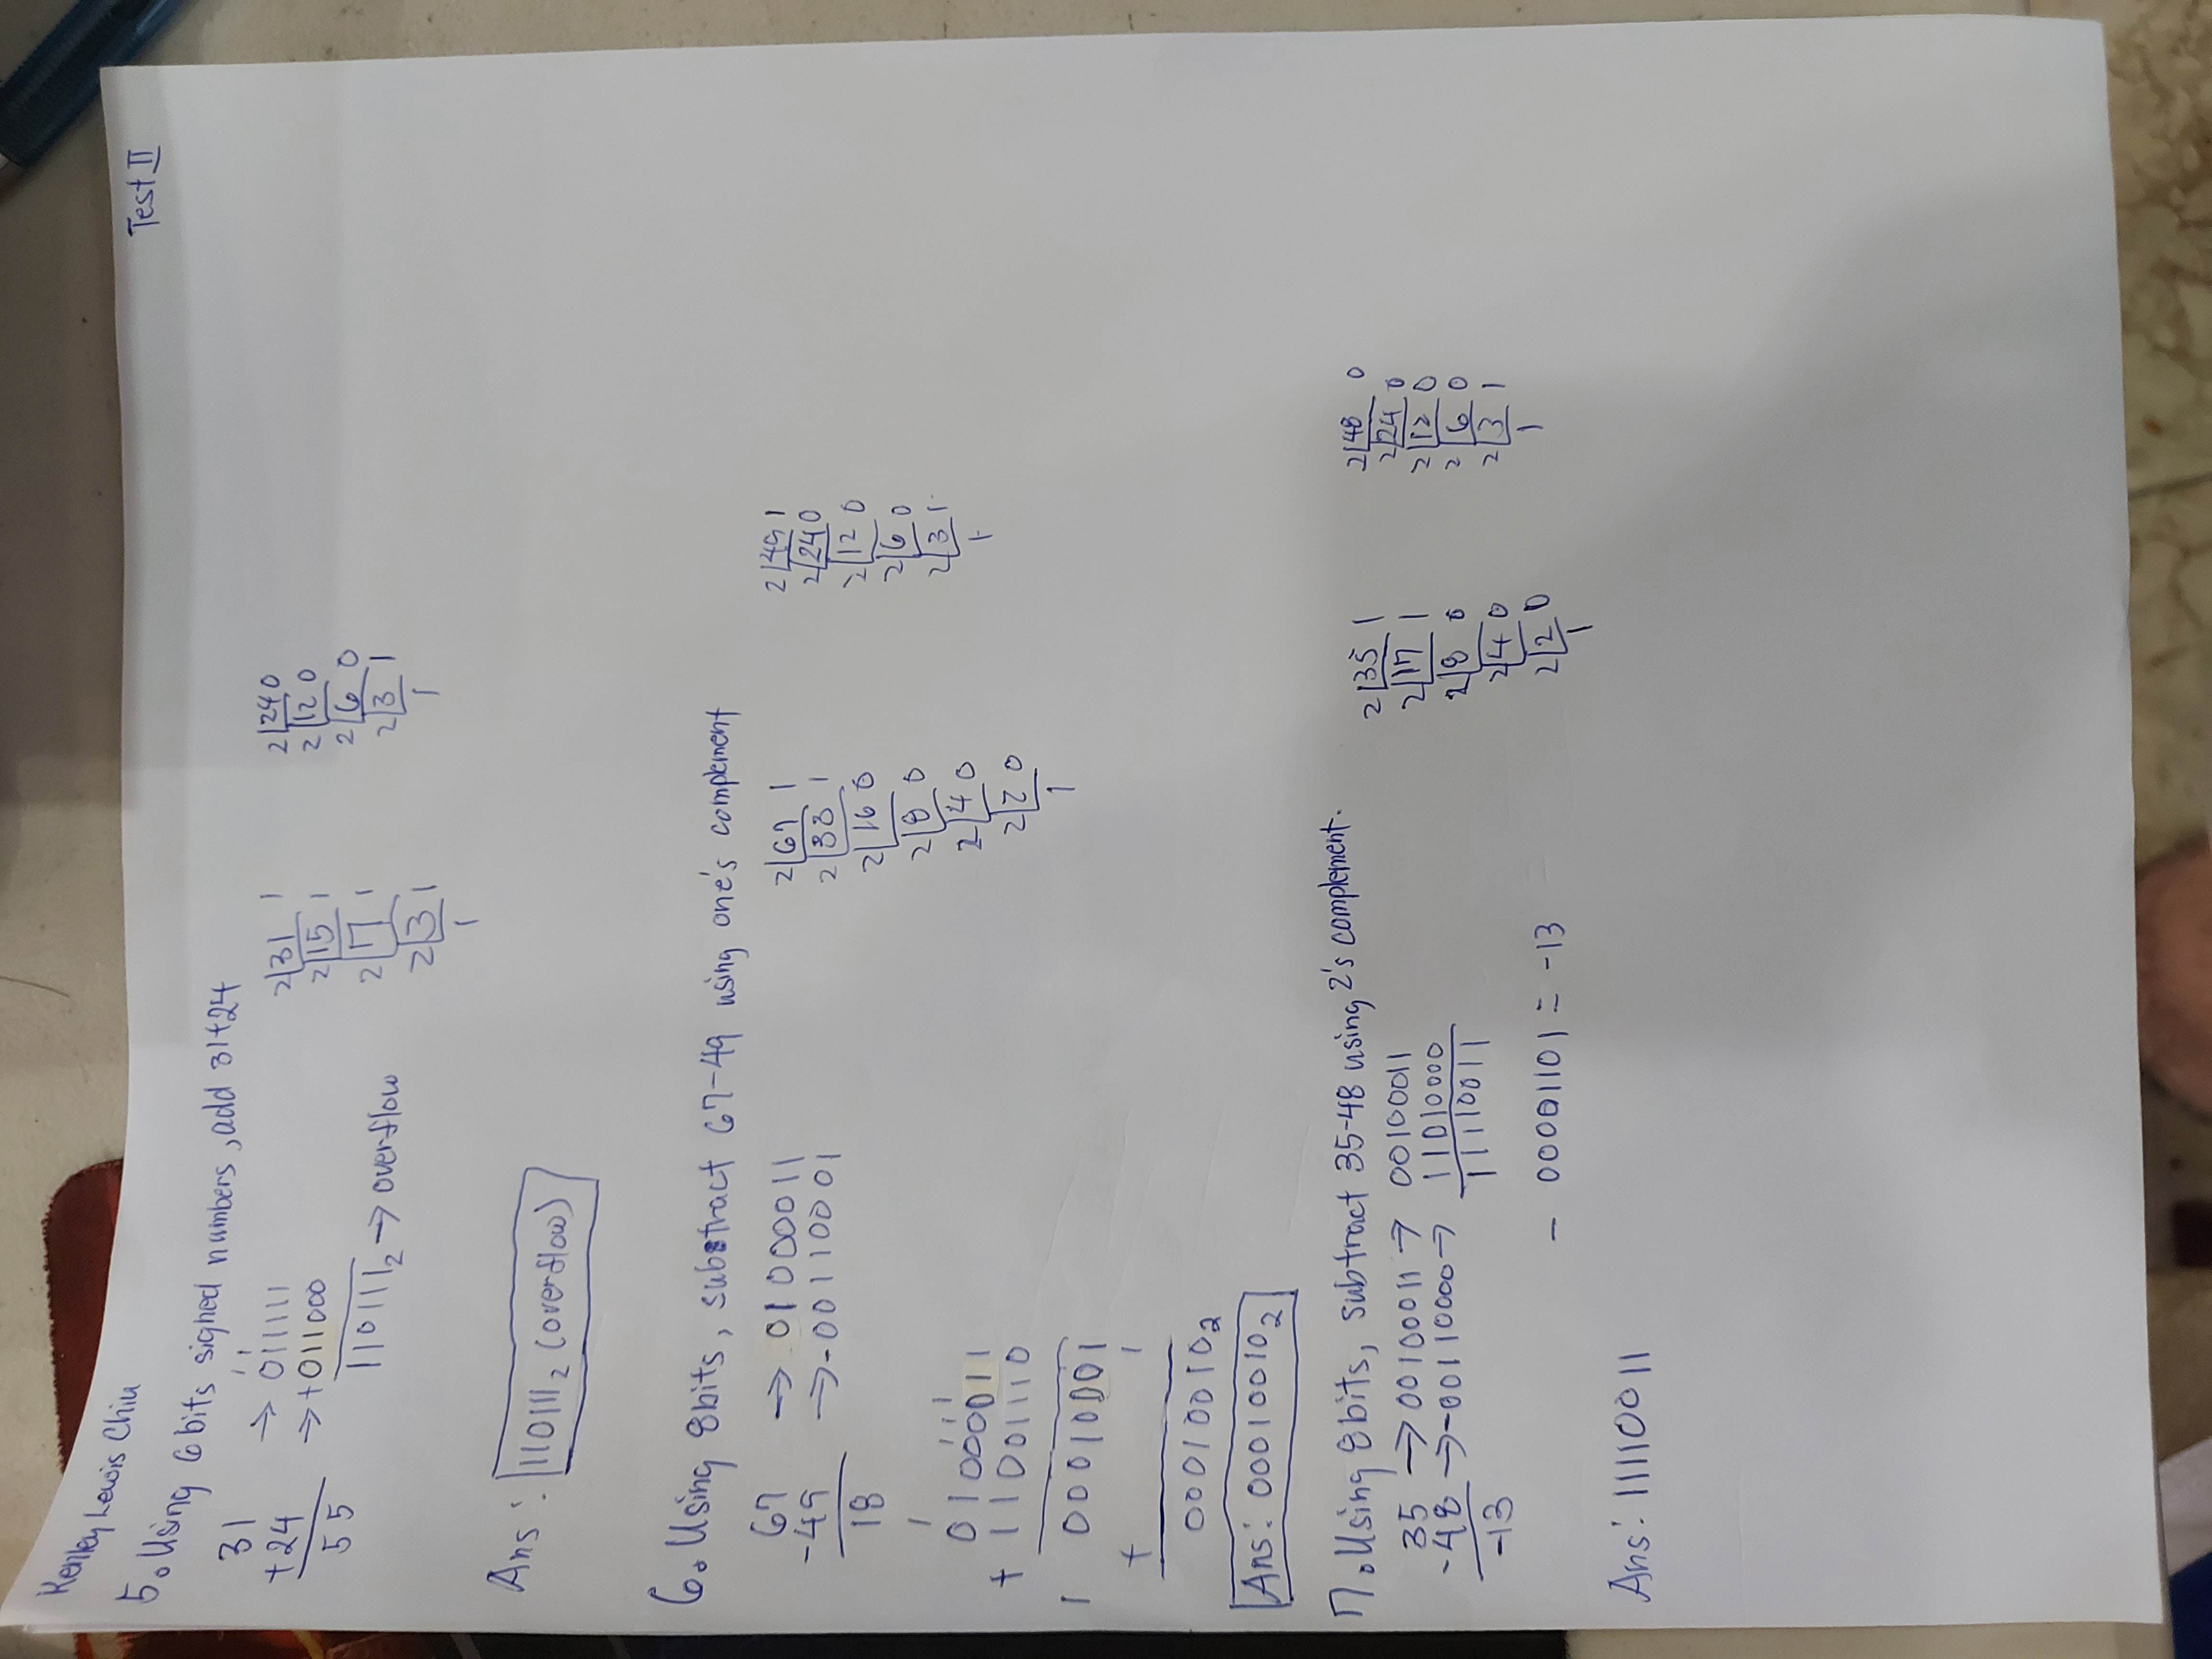 Kenley Lewis Chiu
Test II
5. Using 6 bits signed numbers, add 31+24
31 → 011111
+24 → +011000
55
110111₂ → overflow
1 1
2 31 1
2 15 1
2 7 1
2 3 1
1
2 24 0
2 12 0
2 6 0
2 3 1
1
Ans: 110111₂ (overflow)
6. Using 8bits, substract 67-49 using one's complement
67 → 01000011
-49 → -00110001
18
1
1 1 1
01000011
+ 11001110
1 00010001
+ 1
00010010₂
Ans: 00010010₂
2 67 1
2 33 1
2 16 0
2 8 0
2 4 0
2 2 0
1
2 49 1
2 24 0
2 12 0
2 6 0
2 3 1
1
7. Using 8bits, subtract 35-48 using 2's complement.
35 → 00100011 → 00100011
-48 → -00110000 → 11010000
-13 11110011
- 00001101 = -13
2 35 1
2 17 1
2 8 0
2 4 0
2 2 0
1
2 48 0
2 24 0
2 12 0
2 6 0
2 3 1
1
Ans: 11110011